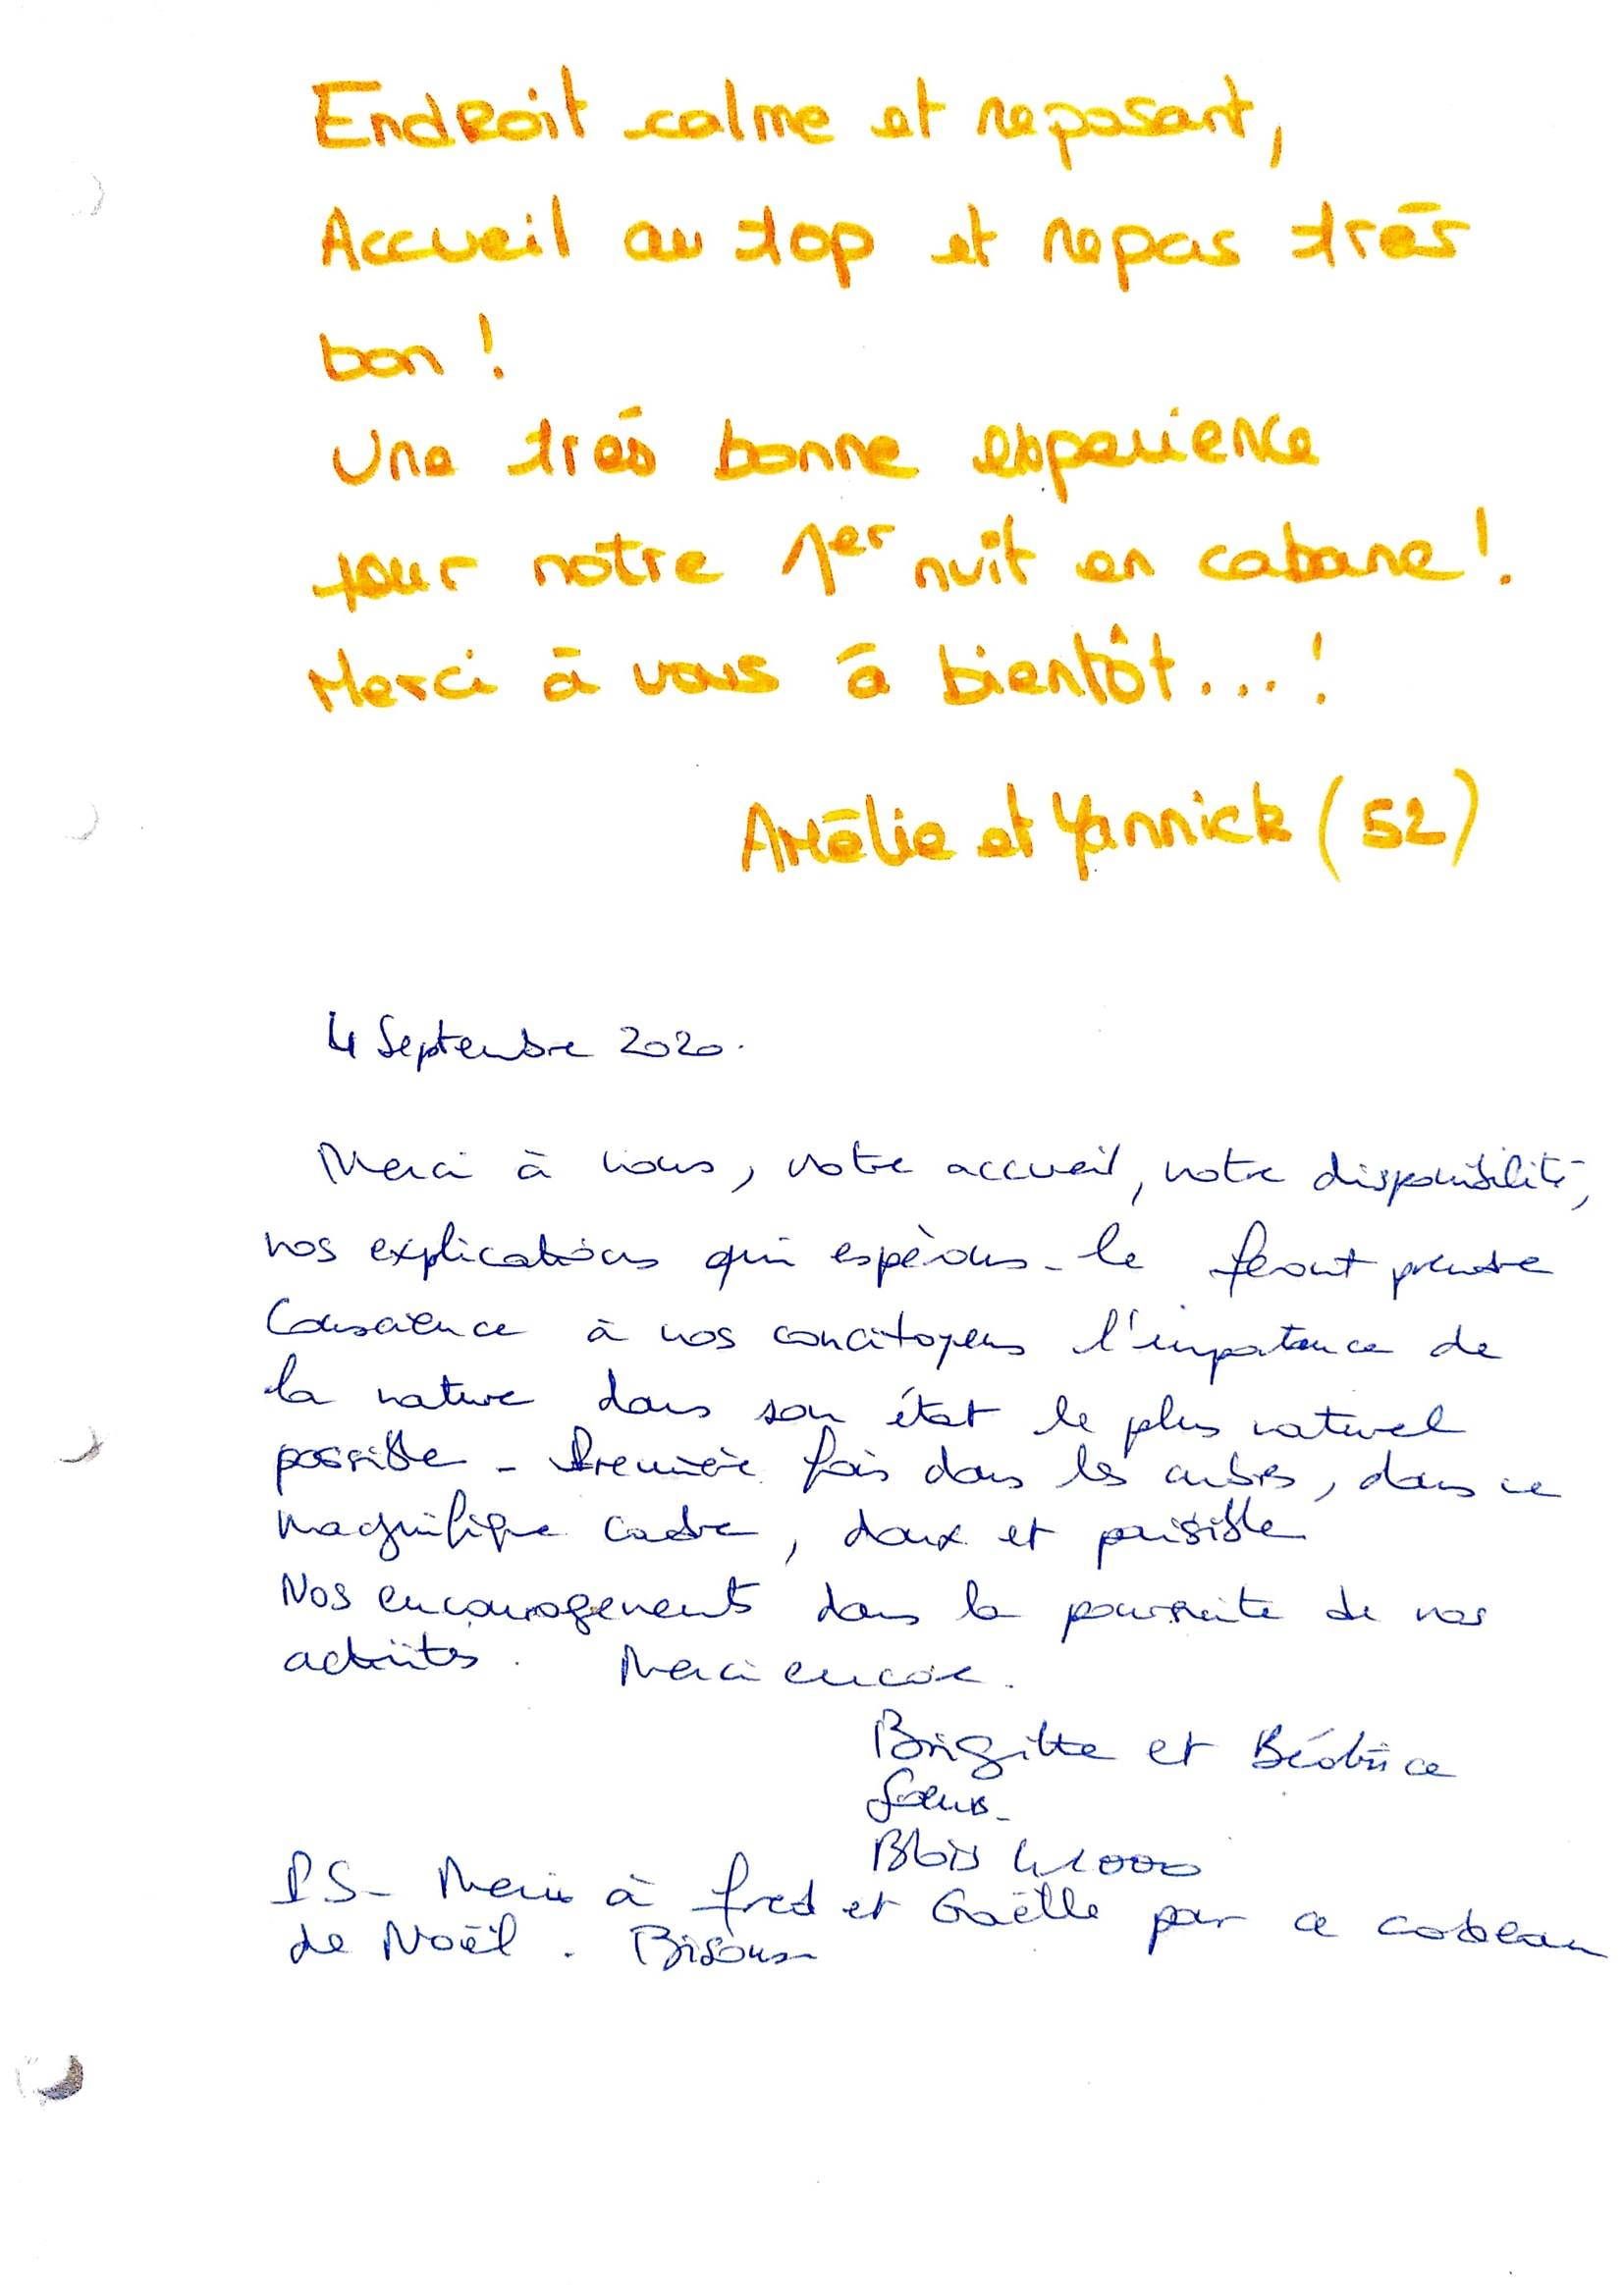 Endroit calme et reposant,
Accueil au top et repas très
bon !
Une très bonne experience
pour notre 1er nuit en cabane !
Merci à vous à bientôt... !
Amélie et Yannick (52)
4 Septembre 2020.
Merci à vous, votre accueil, votre disponibilité,
vos explications qui espérons-le feront prendre
Conscience à nos concitoyens l'importance de
la nature dans son état le plus naturel
possible - Première fois dans les arbres, dans ce
magnifique cadre, doux et paisible
Nos encouragements dans la poursuite de vos
activités. Merci encore.
Brigitte et Béatrice
Soeurs -
Blois 41000
PS - Merci à Fred et Gaëlle pour ce cadeau
de Noël. Bisous